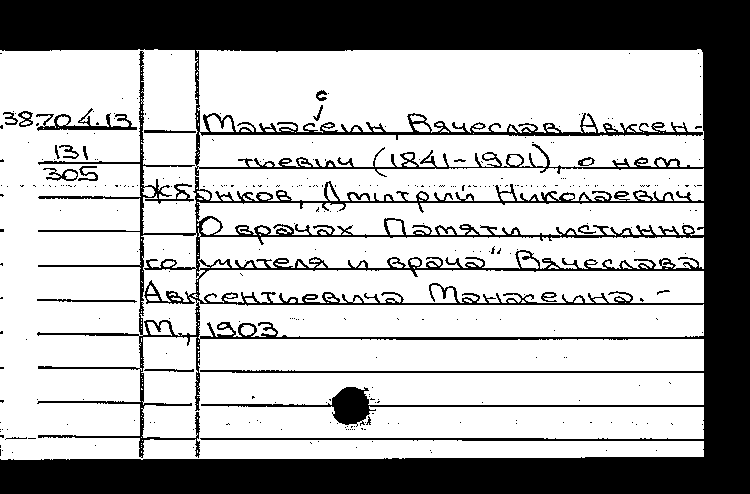 с
38.704.13 Манасеин, Вячеслав Авксен-
131 тьевич (1841-1901), о нем.
305
Жбанков, Дмитрий Николаевич.
О врачах. Памяти „истинно-
го учителя и врача" Вячеслава
Авксентьевича Манасеина. -
М., 1903.